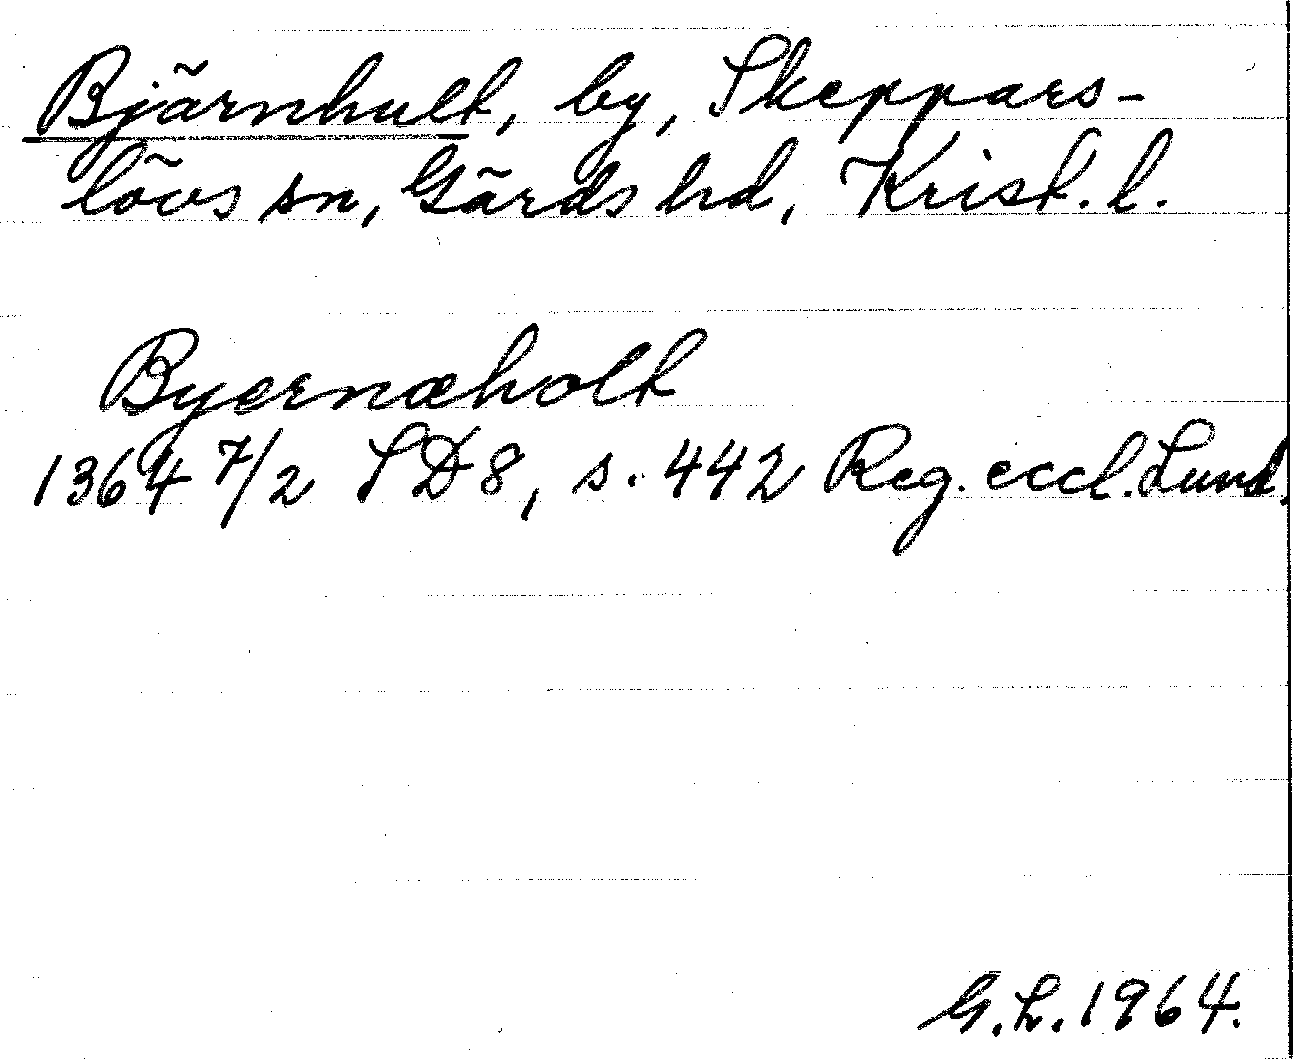 Bjärnhult, by, Skeppars-
lövs sn, Gärds hd, Krist. l.
Byernæholt
1364 7/2 SD 8, s. 442 Reg. eccl. Lund.
G. L. 1964.